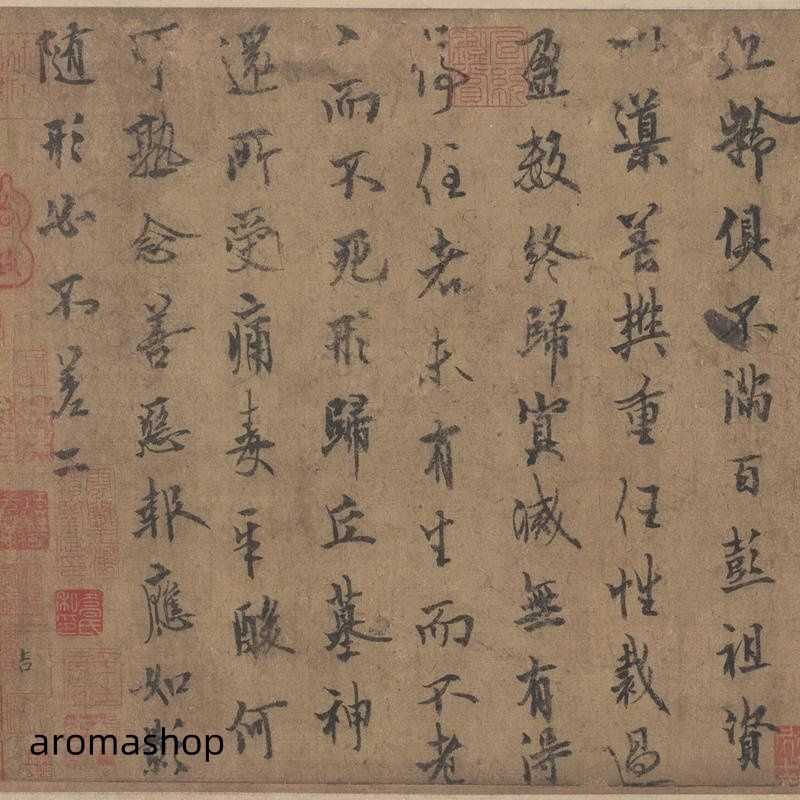 九齡俱不滿百彭祖資
以導養樊重任性裁過
盈數終歸冥滅無有得
停住者未有生而不老
〻而不死形歸丘墓神
還所受痛毒辛酸何
可熟念善惡報應如影
隨形必不差二
aromashop